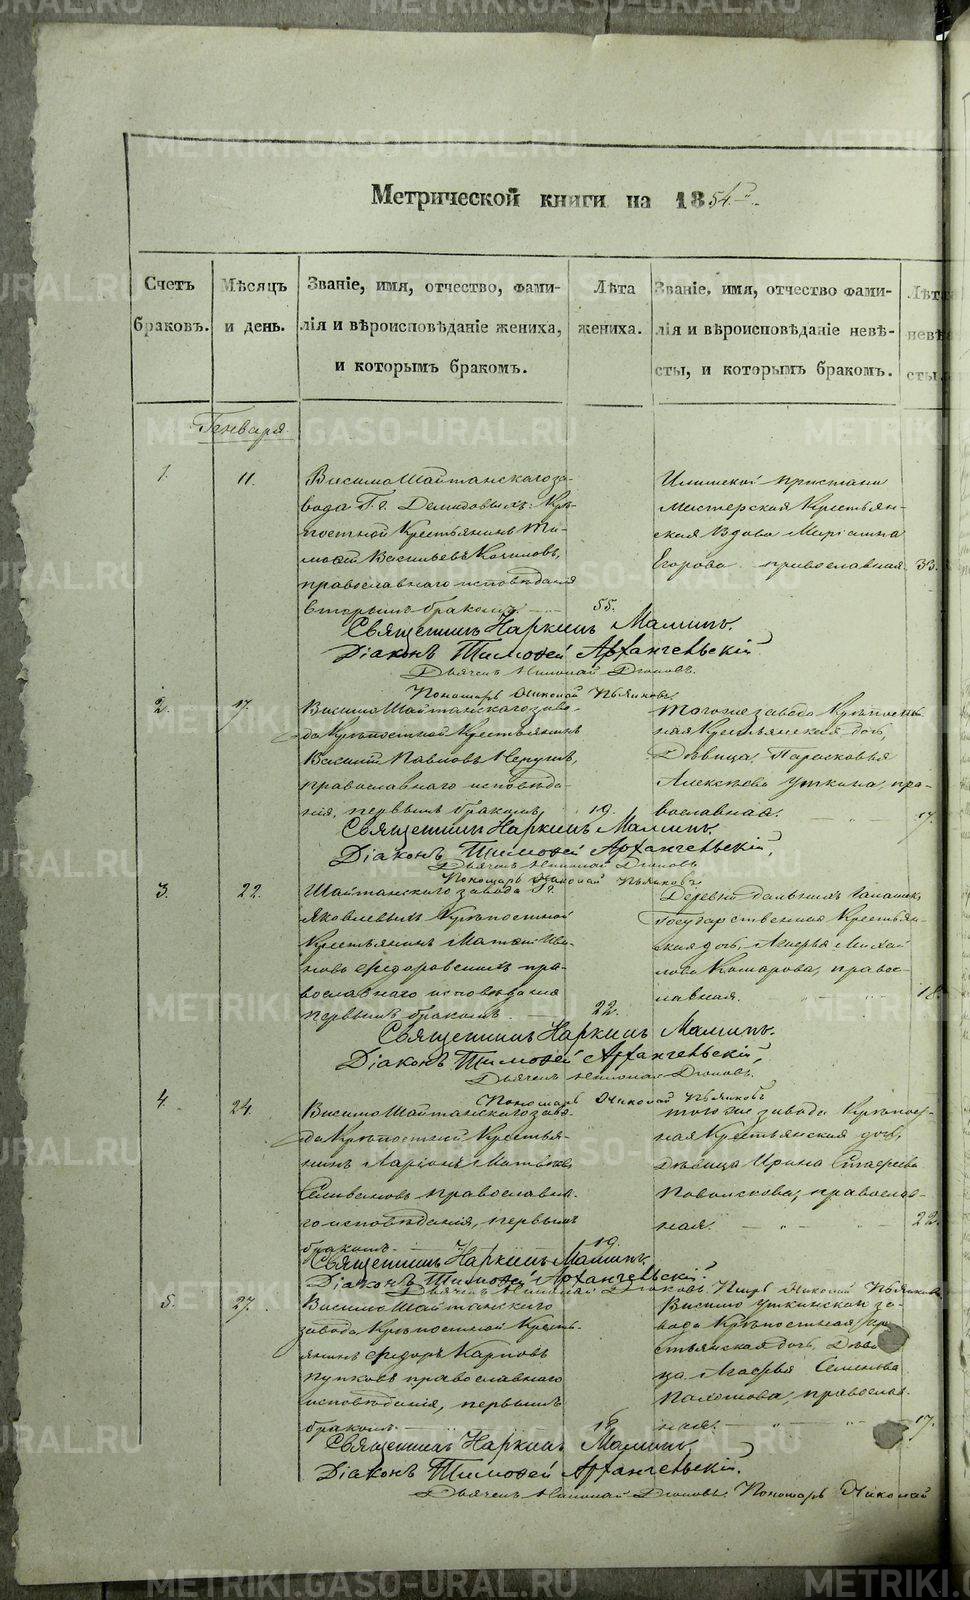 Метрической книги на 1854 г.
Счетъ браковъ.
Мѣсяцъ и день.
Званіе, имя, отчество, фами-
лія и вѣроисповѣданіе жениха,
и которымъ бракомъ.
Лѣта жениха.
Званіе, имя, отчество фами-
лія и вѣроисповѣданіе невѣ-
сты, и которымъ бракомъ.
Лѣта невѣ
сты
Генваря
1. 11.
Висимо Шайтанскаго за-
вода Г.г. Демидовыхъ Крѣ-
постной Крестьянинъ Ти-
мофей Васильевъ
православнаго исповѣданія
вторымъ бракомъ. 55.
пристани
Мастерская Крестьян-
ская Вдова Маріанна
Егорова православная. 33.
Священникъ Наркиссъ Маминъ.
Діаконъ Тимофей Архангельскій
Дьячекъ Николай
Пономарь Николай Пьянковъ
2. 17.
Висимо Шайтанскаго заво-
да Крѣпостной Крестьянинъ
Василій Павловъ
православнаго исповѣда-
нія, первымъ бракомъ 19.
того же завода Крѣпост
ная Крестьянская дочь,
Дѣвица, Парасковья
Алексѣева Уткина, пра-
вославная. 17.
Священникъ Наркиссъ Маминъ.
Діаконъ Тимофей Архангельскій,
Дьячекъ Николай
Пономарь Николай Пьянковъ
3. 22.
Шайтанскаго завода Гг.
Яковлевыхъ Крѣпостной
Крестьянинъ Матвей Ива-
новъ Федоровскихъ пра-
вославнаго исповѣданія
первымъ бракомъ. 22.
Деревни Дальнихъ Галашек,
Государственная Крестьян-
ская дочь, Михай
лова Комарова, правос-
лавная. 18.
Священникъ Наркиссъ Маминъ.
Діаконъ Тимофей Архангельскій,
Дьячекъ Николай
Пономарь Николай Пьянковъ
4. 24.
Висимо Шайтанскаго заво-
да Крѣпостный Крестья-
нинъ Ларіонъ Матвѣевъ
Селивановъ православна-
го исповѣданія, первымъ
бракомъ. 19.
того же завода Крѣпост-
ная Крестьянская дочь,
Дѣвица Ирина
православ-
ная. 22.
Священникъ Наркиссъ Маминъ.
Діаконъ Тимофей Архангельскій.
Дьячекъ Николай Николай Пьянковъ
5. 27.
Висимо Шайтанскаго
завода Крѣпостной Кресть-
янинъ Федоръ Карповъ
православнаго
исповѣданія, первымъ
бракомъ. 18.
Висимо Уткинскаго за-
вода Крѣпостная Кре
стьянская дочь, Дѣви
ца Агафья Семенова
православ-
ная. 17.
Священникъ Наркиссъ Маминъ.
Діаконъ Тимофей Архангельскій.
Дьячекъ Николай Пономарь Николай
METRIKI.GASO-URAL.RU